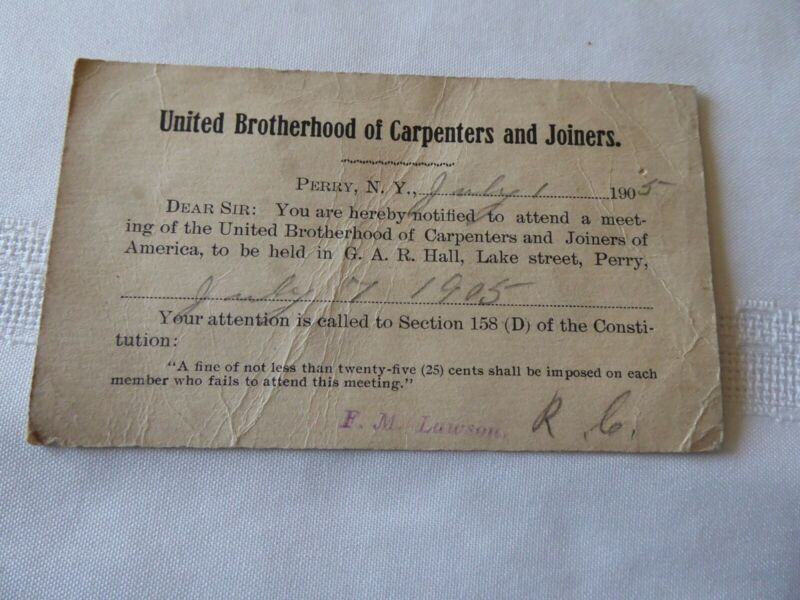 United Brotherhood of Carpenters and Joiners.
PERRY, N. Y., July 1 1905
DEAR SIR: You are hereby notified to attend a meet-
ing of the United Brotherhood of Carpenters and Joiners of
America, to be held in G. A. R. Hall, Lake street, Perry,
July 7 1905
Your attention is called to Section 158 (D) of the Consti-
tution:
"A fine of not less than twenty-five (25) cents shall be imposed on each
member who fails to attend this meeting."
F. M. Lawson, R. C.